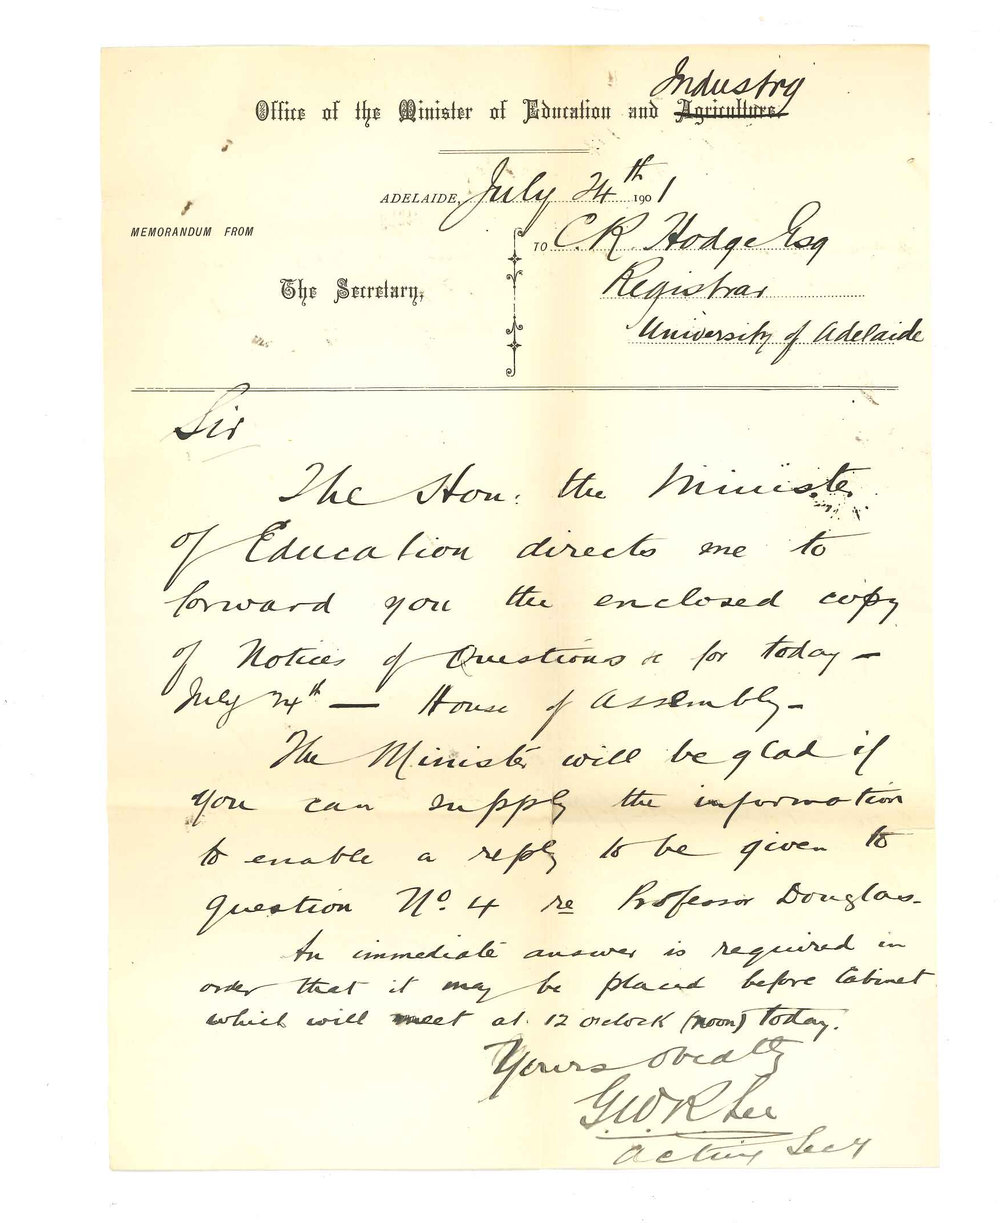 Industry
Office of the Minister of Education and Agriculture.
ADELAIDE, July 24th 1901
MEMORANDUM FROM
The Secretary,
TO C. R. Hodge Esq
Registrar
University of Adelaide
Sir
The Hon. the Minister
of Education directs me to
forward you the enclosed copy
of Notices of Questions &c for today —
July 24th — House of Assembly —
The Minister will be glad if
you can supply the information
to enable a reply to be given to
question No. 4 re Professor Douglas.
An immediate answer is required in
order that it may be placed before Cabinet
which will meet at 12 o'clock (noon) today.
Yours obedtly
G.W.R Lee
Acting Secy